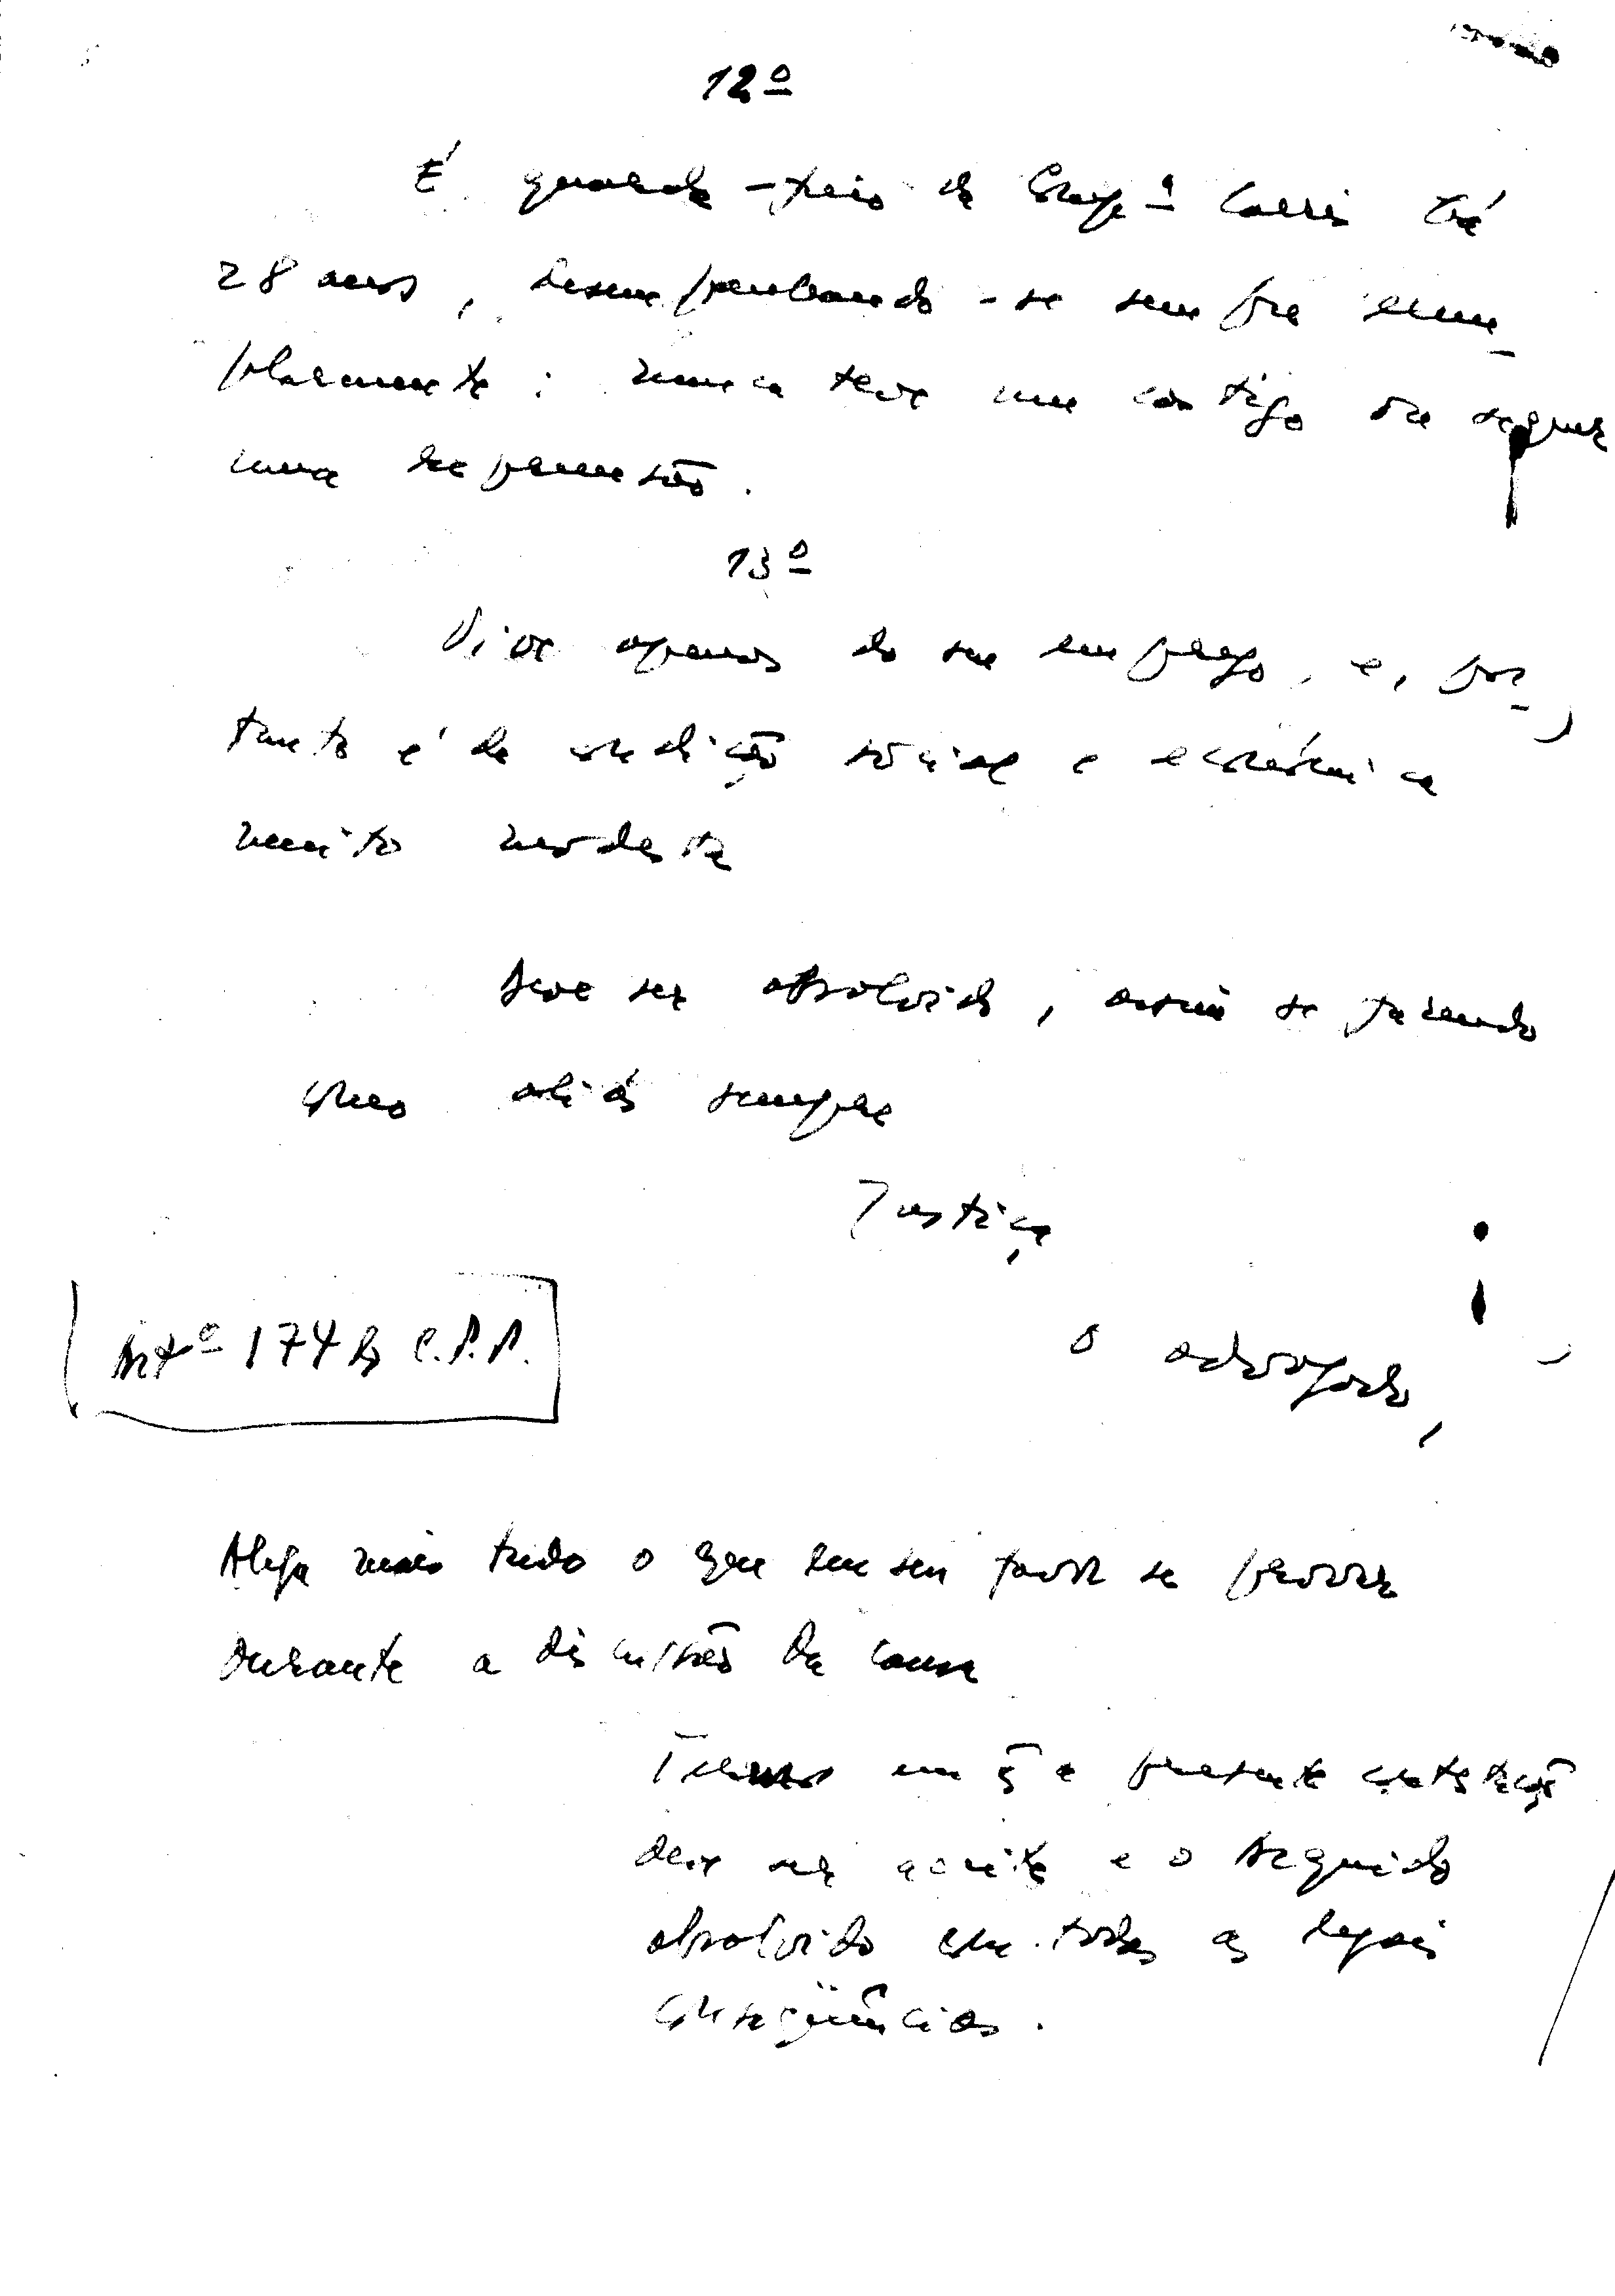 12º
É guarda-freio da Comp.ª Carris há
28 anos, desempenhando-se sempre exem-
plarmente: nunca teve um castigo ou sequer
uma repreensão.
13º
Vive apenas do seu emprego, e, por-
tanto é de condição social e económica
muito modesta
Deve ser absolvido, assim se fazendo
como aliás sempre
Justiça
Artº 174 do C.P.P.
O advogado,
Alega mais tudo o que em seu favor se provar
durante a discussão da causa
Termos em q̃ a presente contestação
deve ser aceite e o Arguido
absolvido com todas as legais
conseqüências.